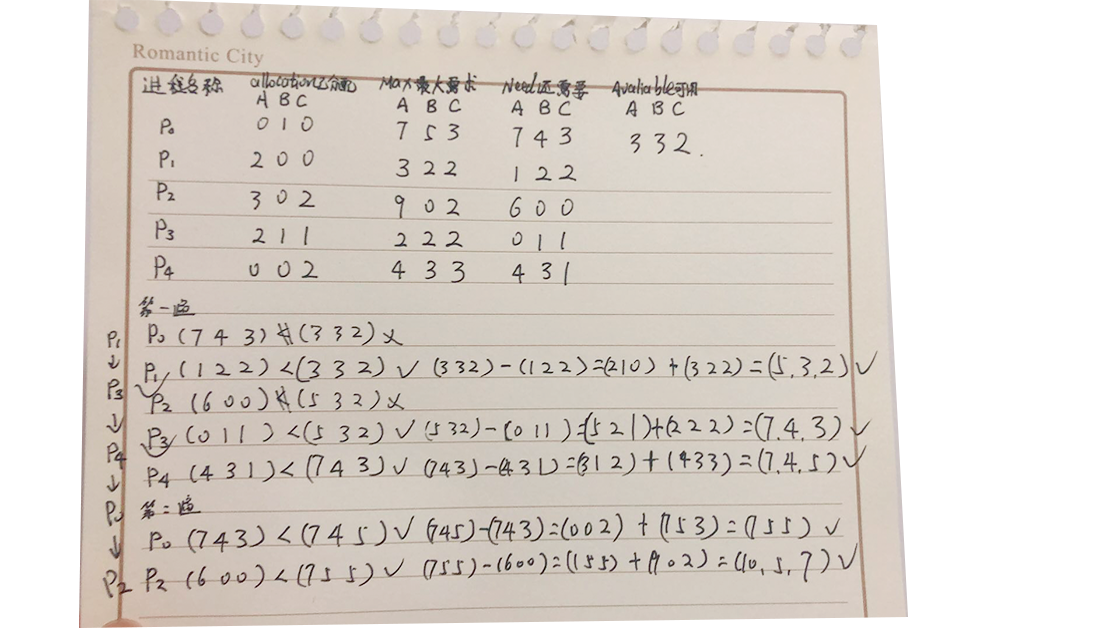 Romantic City
进程名称 allocation已分配 Max最大需求 Need还需要 Avaliable可用
A B C A B C A B C A B C
P₀ 0 1 0 7 5 3 7 4 3 3 3 2.
P₁ 2 0 0 3 2 2 1 2 2
P₂ 3 0 2 9 0 2 6 0 0
P₃ 2 1 1 2 2 2 0 1 1
P₄ 0 0 2 4 3 3 4 3 1
第一遍
P₀ (7 4 3) ≮ (3 3 2) ×
P₁ (1 2 2) < (3 3 2) ✓ (332) - (122) = (210) + (322) = (5,3,2) ✓
P₂ (6 0 0) ≮ (5 3 2) ×
P₃ (0 1 1) < (5 3 2) ✓ (532) - (011) = (521) + (222) = (7,4,3) ✓
P₄ (4 3 1) < (7 4 3) ✓ (743) - (431) = (312) + (433) = (7,4,5) ✓
第二遍
P₀ (743) < (745) ✓ (745) - (743) = (002) + (753) = (755) ✓
P₂ (600) < (755) ✓ (755) - (600) = (155) + (902) = (10,5,7) ✓
P₁
↓
P₃
↓
P₄
↓
P₀
↓
P₂